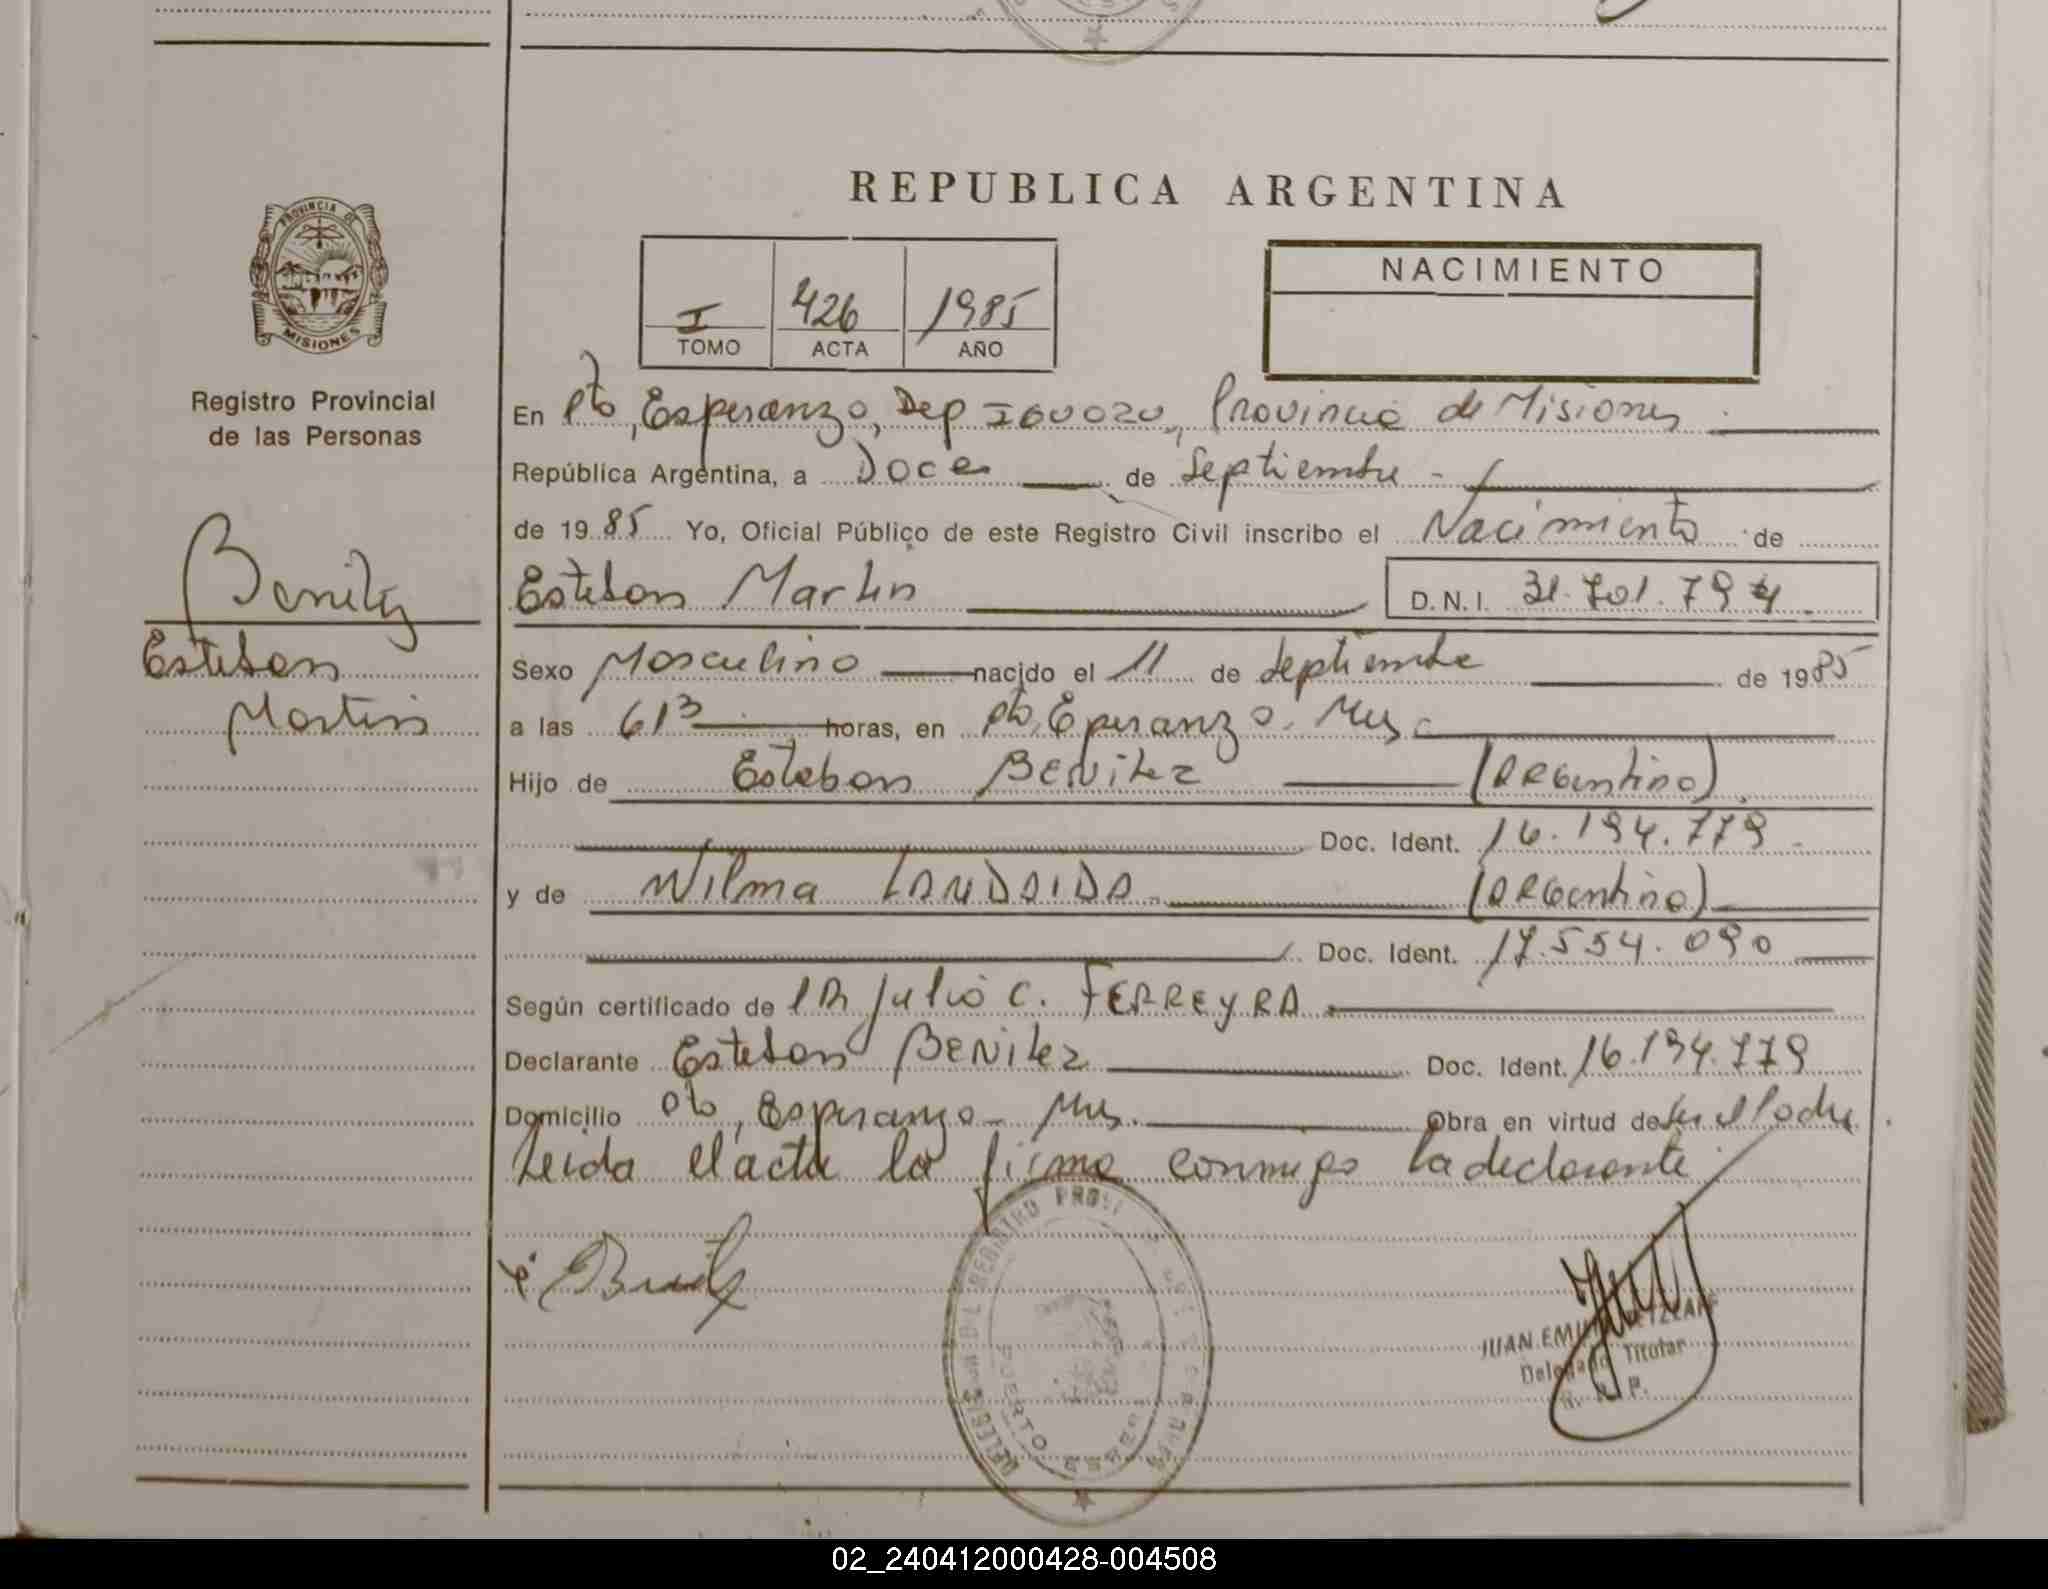 REPUBLICA ARGENTINA
PROVINCIA DE
MISIONES
Registro Provincial
de las Personas
I 426 1985
TOMO ACTA AÑO
NACIMIENTO
En Pto, Esperanza, Dep IGUAZU, Provincia de Misiones
República Argentina, a Doce de Septiembre -
de 1985 Yo, Oficial Público de este Registro Civil inscribo el Nacimiento de
Benitez
Esteban Martin D.N.I. 31.701.794
Esteban
Sexo Masculino nacido el 11 de Septiembre de 1985
Martin
a las 613 horas, en Pto, Eperanza. Mns
Hijo de Esteban BENitez (ARGentino)
Doc. Ident. 16.194.779
y de Wilma LANDAIDA (ARGentina)
Doc. Ident. 17.554.090
Según certificado de Julio C. FERREYRA
Declarante Esteban BENitez Doc. Ident. 16.194.779
Domicilio Pto, Esperanza - Mns. Obra en virtud de ser el Padre
Leida el acta la firma conmigo la declarante
REGISTRO
PUERTO
JUAN EMILIO
Delegado Titular
02_240412000428-004508